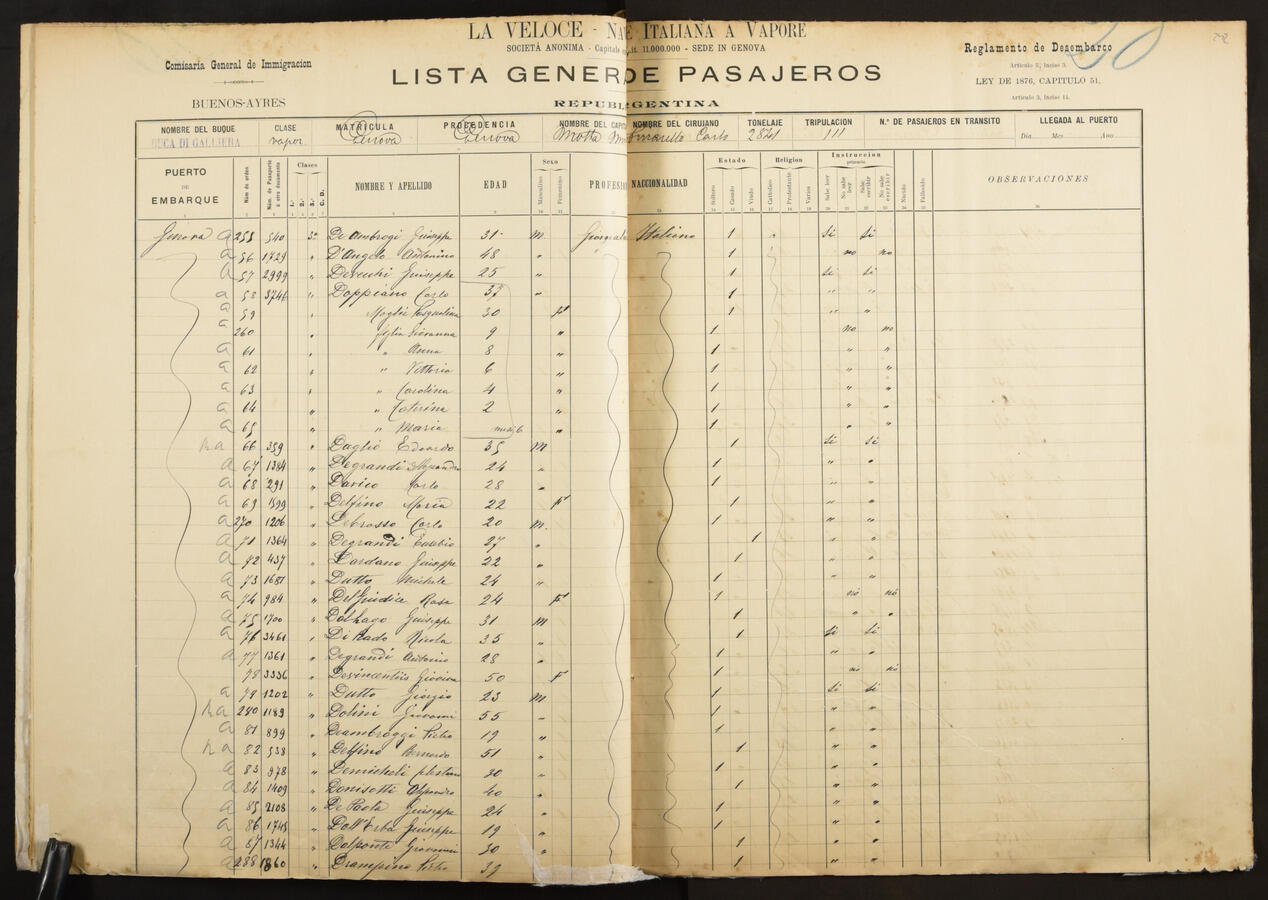 LA VELOCE - NA E ITALIANA A VAPORE
SOCIETÀ ANONIMA - Capitale it. 11.000.000 - SEDE IN GENOVA
Comisaria General de Immigracion
BUENOS-AYRES
LISTA GENER DE PASAJEROS
REPUBL GENTINA
Reglamento de Desembarco
Articulo 2, Inciso 3.
LEY DE 1876, CAPITULO 51,
Articulo 3, Inciso 14.
NOMBRE DEL BUQUE CLASE MATRICULA PROCEDENCIA NOMBRE DEL CAP NOMBRE DEL CIRUJANO TONELAJE TRIPULACION N.º DE PASAJEROS EN TRANSITO LLEGADA AL PUERTO
DUCA DI GALLIERA vapor Genova Genova Motta Carlo 2841 111 Dia Mes Ano
PUERTO DE EMBARQUE Núm de orden Núm. de Pasaporte ú otro documento Clases 1.ª 2.ª 3.ª C. D. NOMBRE Y APELLIDO EDAD Sexo Masculino Femenino PROFESI NACCIONALIDAD Estado Soltero Casado Viudo Religion Catholico Protestante Varios Instruccion primaria Sabe leer No sabe leer Sabe escribir No sabe escribir Nacido Fallecido OBSERVACIONES
Genova a 255 540 3ª De Ambrogi Giuseppe 31 m Giornal Italiano 1 " Si Si
a 56 1729 " D'Angelo Antonino 48 " 1 " no no
a 57 2999 " Giuseppe 25 " 1 Si Si
a 58 3746 " Doppiano Carlo 37 " 1 " "
a 59 " Moglie Pasqualina 30 f 1 " "
a 260 " Figlia Giovanna 9 " 1 no no
a 61 " " Anna 8 " 1 " "
a 62 " " Vittoria 6 " 1 " "
a 63 " " Carolina 4 " 1 " "
a 64 " " Caterina 2 " 1 " "
a 65 " " Maria mesi 6 " 1 " "
na 66 359 " Daglio Edoardo 35 m 1 Si Si
a 67 1384 " Degrandi 24 " 1 " "
a 68 291 " Davico Carlo 28 " 1 " "
a 69 1599 " Delfino Maria 22 f 1 " "
a 270 1206 " Carlo 20 m 1 " "
a 71 1364 " Degrandi Eusebio 27 " 1 " "
a 72 437 " Dardano Giuseppe 22 " 1 " "
a 73 1681 " Dutto Michele 24 " 1 " "
a 74 984 " Del Giudice Rosa 24 f 1 no no
a 75 1700 " Giuseppe 31 m 1 " "
a 76 3461 " Nicola 35 " 1 Si Si
a 77 1361 " Degrandi Antonio 28 " 1 " "
78 3336 " Devincentiis 50 f 1 no no
a 79 1202 " Dutto Giorgio 23 m 1 Si Si
na 280 1189 " Dolini Giovanni 55 " 1 " "
a 81 899 " Deambroggi Pietro 19 " 1 " "
na 82 538 " Delfino Bernardo 51 " 1 " "
a 83 978 " Demicheli 30 " 1 " "
a 84 1409 " Donisotti 40 " 1 " "
a 85 2108 " De Paola Giuseppe 24 " 1 " "
a 86 1745 " Dall'Erba Giuseppe 19 " 1 " "
a 87 1344 " Dalponte Giovanni 30 " 1 " "
a 288 1860 " Pietro 37 " 1 " "